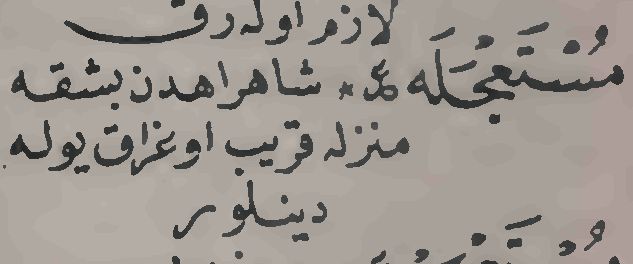 لازم اوله رق
مُسْتَعْجَلَه * شاهراهدن بشقه
منزله قريب اوغراق يوله
دينلور